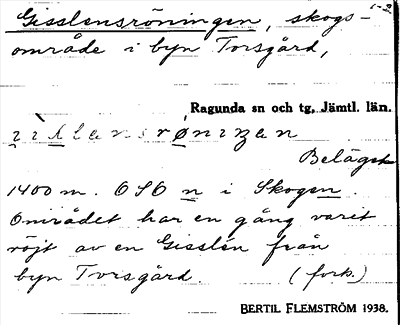 1-2
Gisslensröningen, skogs-
område i byn Torsgård,
Ragunda sn och tg, Jämtl. län.
Beläget
1400 m. OSO n i Skogen.
Området har en gång varit
röjt av en Gisslén från
byn Torsgård. (forts.)
BERTIL FLEMSTRÖM 1938.